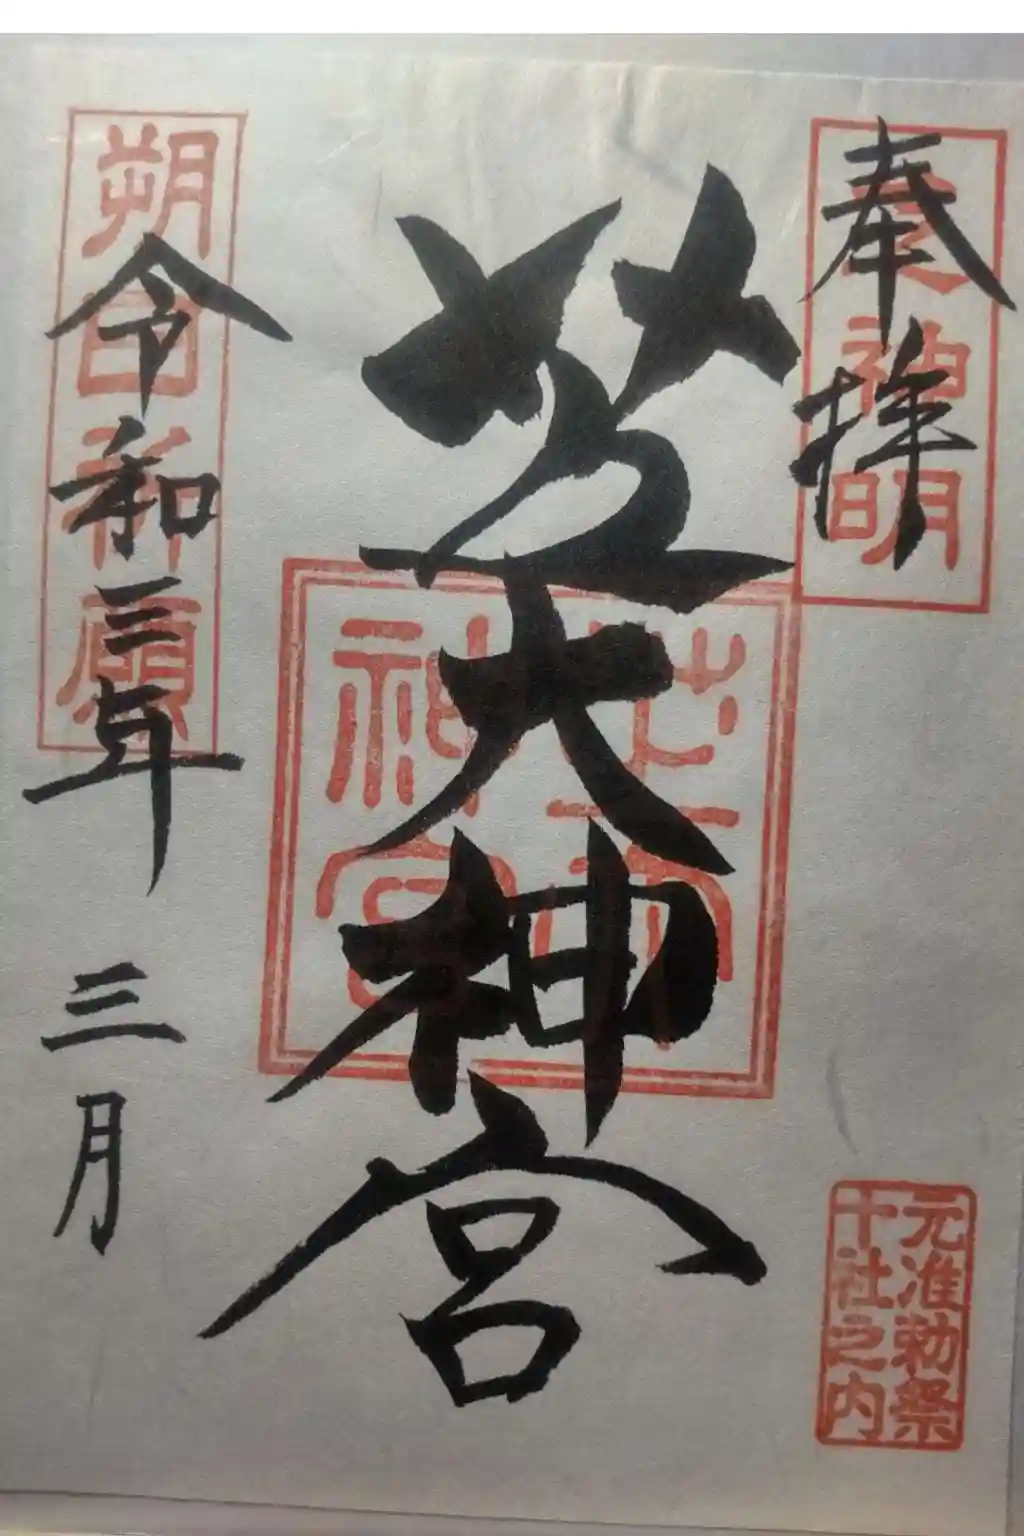 奉拝
芝神明
芝大神宮
芝大神宮
元准勅祭
十社之内
朔日祈願
令和三年 三月